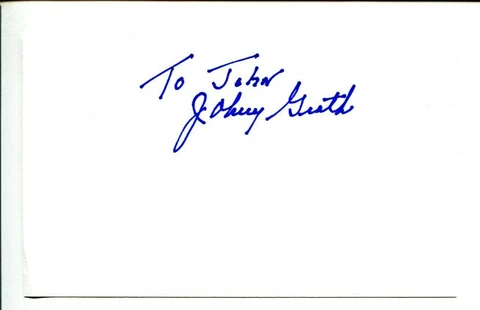 To John
Johnny Groth